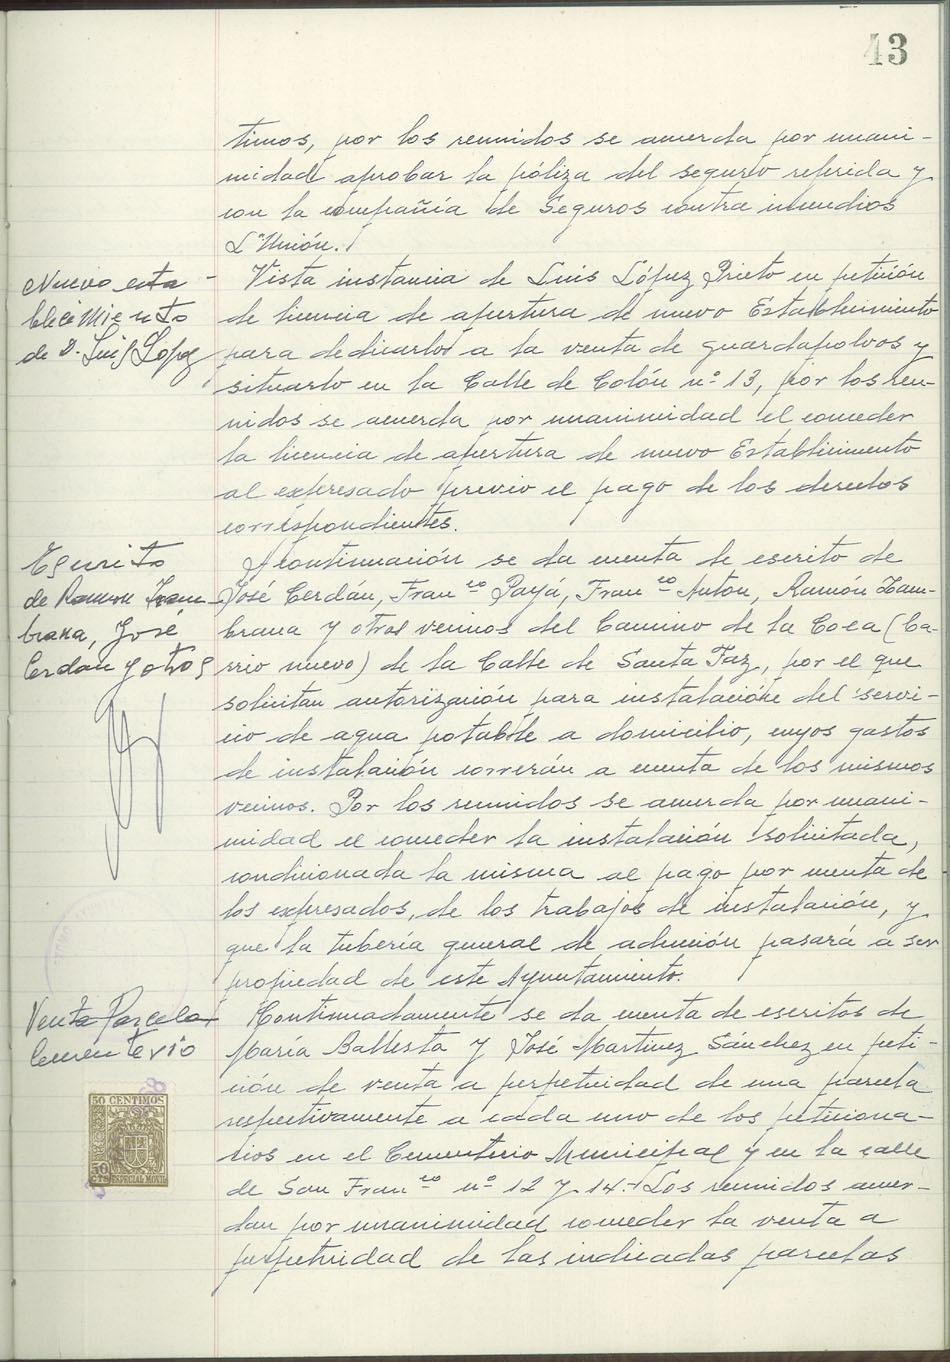 43
timos, por los reunidos se acuerda por unani-
midad aprobar la póliza del seguro referida y
con la compañía de Seguros contra incendios
L'Unión.
Nuevo esta-
blecimiento
de D. Luis López
Vista instancia de Luis López Prieto en petición
de licencia de apertura de nuevo Establecimiento
para dedicarlo a la venta de guardapolvos y
situarlo en la Calle de Colón nº 13, por los reu-
nidos se acuerda por unanimidad el conceder
la licencia de apertura de nuevo Establecimiento
al expresado previo el pago de los derechos
correspondientes.
Escrito
de Ramon Zam-
brana, José
Cerdan y otros
A continuación se da cuenta de escrito de
José Cerdán, Franco Payá, Franco Anton, Ramón Zam-
brana y otros vecinos del Camino de la Coca (Ba-
rrio nuevo) de la Calle de Santa Faz, por el que
solicitan autorización para instalación del servi-
cio de agua potable a domicilio, cuyos gastos
de instalación correrán a cuenta de los mismos
vecinos. Por los reunidos se acuerda por unani-
midad el conceder la instalación solicitada,
condicionada la misma al pago por cuenta de
los expresados, de los trabajos de instalación, y
que la tubería general de aducción pasará a ser
propiedad de este Ayuntamiento.
Venta Parcelas
Cementerio
Continuadamente se da cuenta de escritos de
María Ballesta y José Martinez Sánchez en peti-
ción de venta a perpetuidad de una parcela
respectivamente a cada uno de los peticiona-
rios en el Cementerio Municipal y en la calle
de San Franco nº 12 y 14.- Los reunidos acuer-
dan por unanimidad conceder la venta a
perpetuidad de las indicadas parcelas
50 CENTIMOS
50
CTS ESPECIAL MOVIL